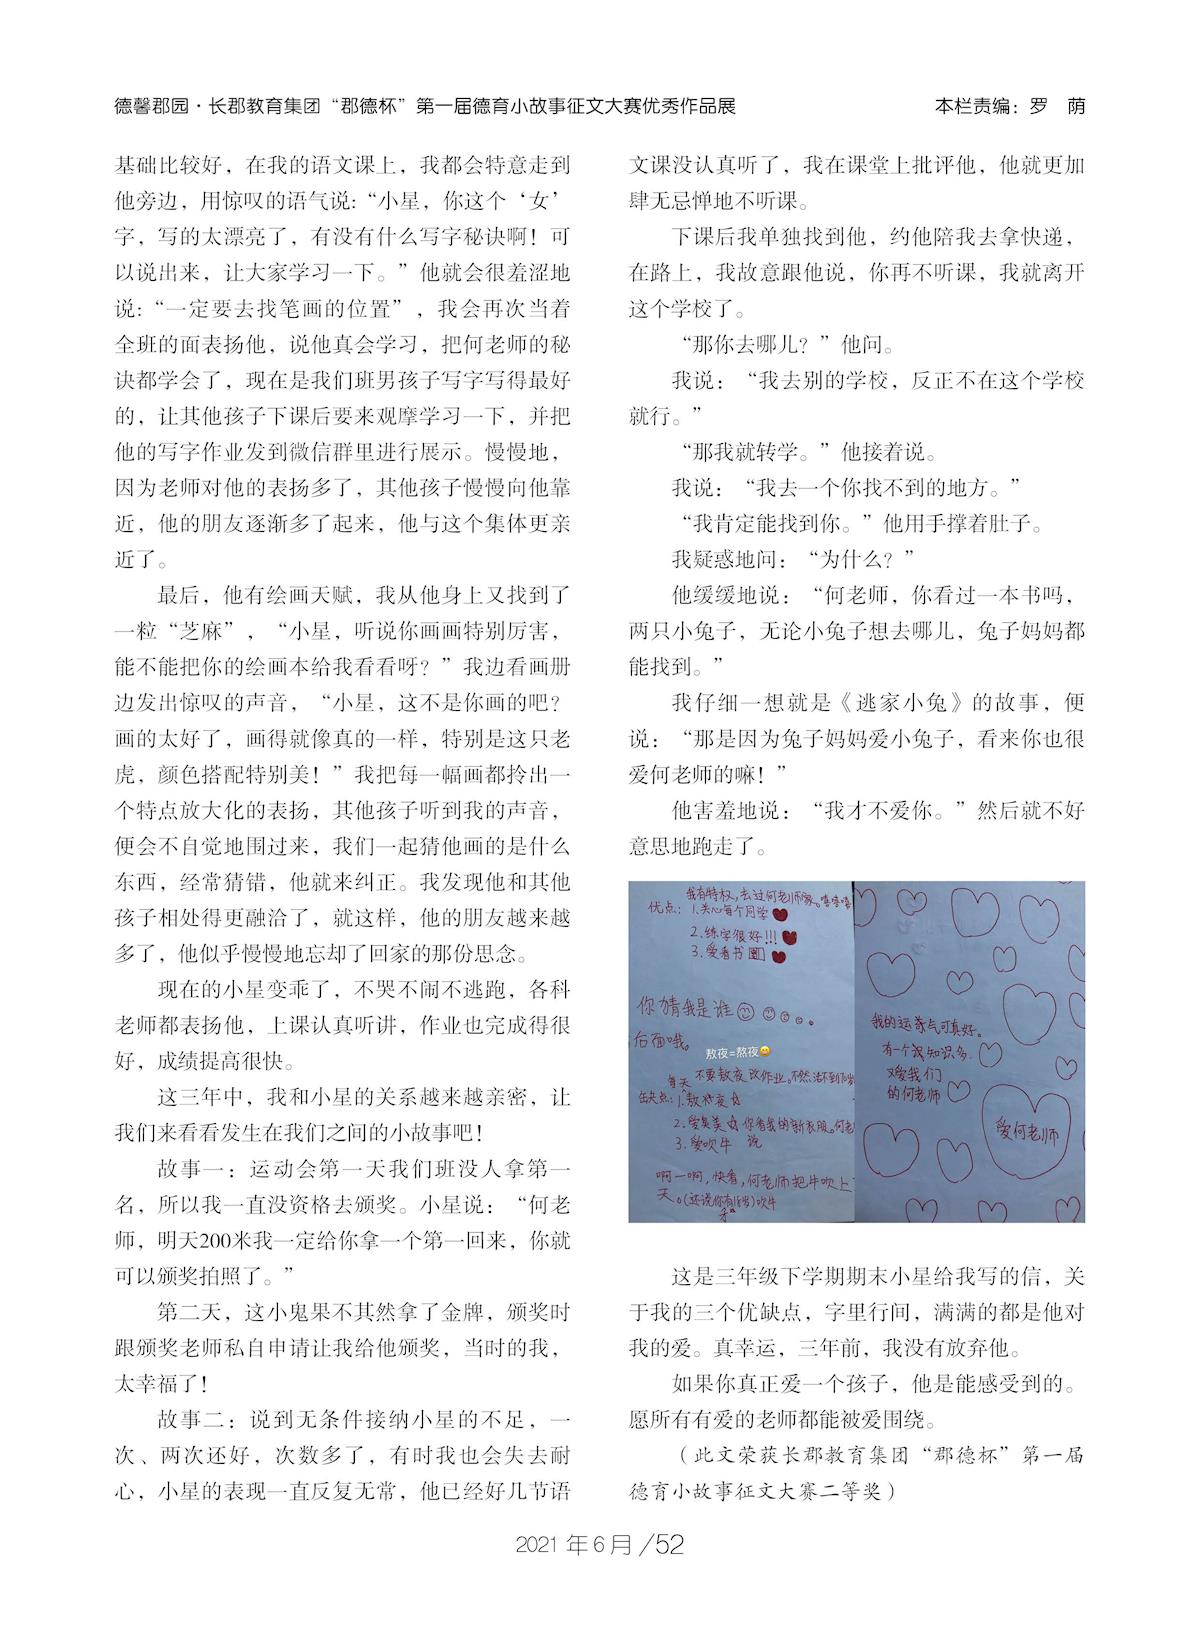 德馨郡园·长郡教育集团“郡德杯”第一届德育小故事征文大赛优秀作品展
本栏责编：罗　荫
基础比较好，在我的语文课上，我都会特意走到
他旁边，用惊叹的语气说：“小星，你这个‘女’
字，写的太漂亮了，有没有什么写字秘诀啊！可
以说出来，让大家学习一下。”他就会很羞涩地
说：“一定要去找笔画的位置”，我会再次当着
全班的面表扬他，说他真会学习，把何老师的秘
诀都学会了，现在是我们班男孩子写字写得最好
的，让其他孩子下课后要来观摩学习一下，并把
他的写字作业发到微信群里进行展示。慢慢地，
因为老师对他的表扬多了，其他孩子慢慢向他靠
近，他的朋友逐渐多了起来，他与这个集体更亲
近了。
最后，他有绘画天赋，我从他身上又找到了
一粒“芝麻”，“小星，听说你画画特别厉害，
能不能把你的绘画本给我看看呀？”我边看画册
边发出惊叹的声音，“小星，这不是你画的吧？
画的太好了，画得就像真的一样，特别是这只老
虎，颜色搭配特别美！”我把每一幅画都拎出一
个特点放大化的表扬，其他孩子听到我的声音，
便会不自觉地围过来，我们一起猜他画的是什么
东西，经常猜错，他就来纠正。我发现他和其他
孩子相处得更融洽了，就这样，他的朋友越来越
多了，他似乎慢慢地忘却了回家的那份思念。
现在的小星变乖了，不哭不闹不逃跑，各科
老师都表扬他，上课认真听讲，作业也完成得很
好，成绩提高很快。
这三年中，我和小星的关系越来越亲密，让
我们来看看发生在我们之间的小故事吧！
故事一：运动会第一天我们班没人拿第一
名，所以我一直没资格去颁奖。小星说：“何老
师，明天200米我一定给你拿一个第一回来，你就
可以颁奖拍照了。”
第二天，这小鬼果不其然拿了金牌，颁奖时
跟颁奖老师私自申请让我给他颁奖，当时的我，
太幸福了！
故事二：说到无条件接纳小星的不足，一
次、两次还好，次数多了，有时我也会失去耐
心，小星的表现一直反复无常，他已经好几节语
文课没认真听了，我在课堂上批评他，他就更加
肆无忌惮地不听课。
下课后我单独找到他，约他陪我去拿快递，
在路上，我故意跟他说，你再不听课，我就离开
这个学校了。
“那你去哪儿？”他问。
我说：“我去别的学校，反正不在这个学校
就行。”
“那我就转学。”他接着说。
我说：“我去一个你找不到的地方。”
“我肯定能找到你。”他用手撑着肚子。
我疑惑地问：“为什么？”
他缓缓地说：“何老师，你看过一本书吗，
两只小兔子，无论小兔子想去哪儿，兔子妈妈都
能找到。”
我仔细一想就是《逃家小兔》的故事，便
说：“那是因为兔子妈妈爱小兔子，看来你也很
爱何老师的嘛！”
他害羞地说：“我才不爱你。”然后就不好
意思地跑走了。
我有特权，去过何老师家。嘻嘻嘻
优点：1.关心每个同学
2.练字很好!!!
3.爱看书
你猜我是谁
后面哦。
敖夜=熬夜
每天不要敖夜改作业。不然活不到70岁
缺点：1.敖夜
2.爱臭美 你看我的新衣服。何老
3.爱吹牛 说
啊一啊，快看，何老师把牛吹上
天。(还说你有18岁)吹牛
我的运气可真好。
有一个知识多
又爱我们
的何老师
爱何老师
这是三年级下学期期末小星给我写的信，关
于我的三个优缺点，字里行间，满满的都是他对
我的爱。真幸运，三年前，我没有放弃他。
如果你真正爱一个孩子，他是能感受到的。
愿所有有爱的老师都能被爱围绕。
（此文荣获长郡教育集团“郡德杯”第一届
德育小故事征文大赛二等奖）
2021 年 6 月 /52